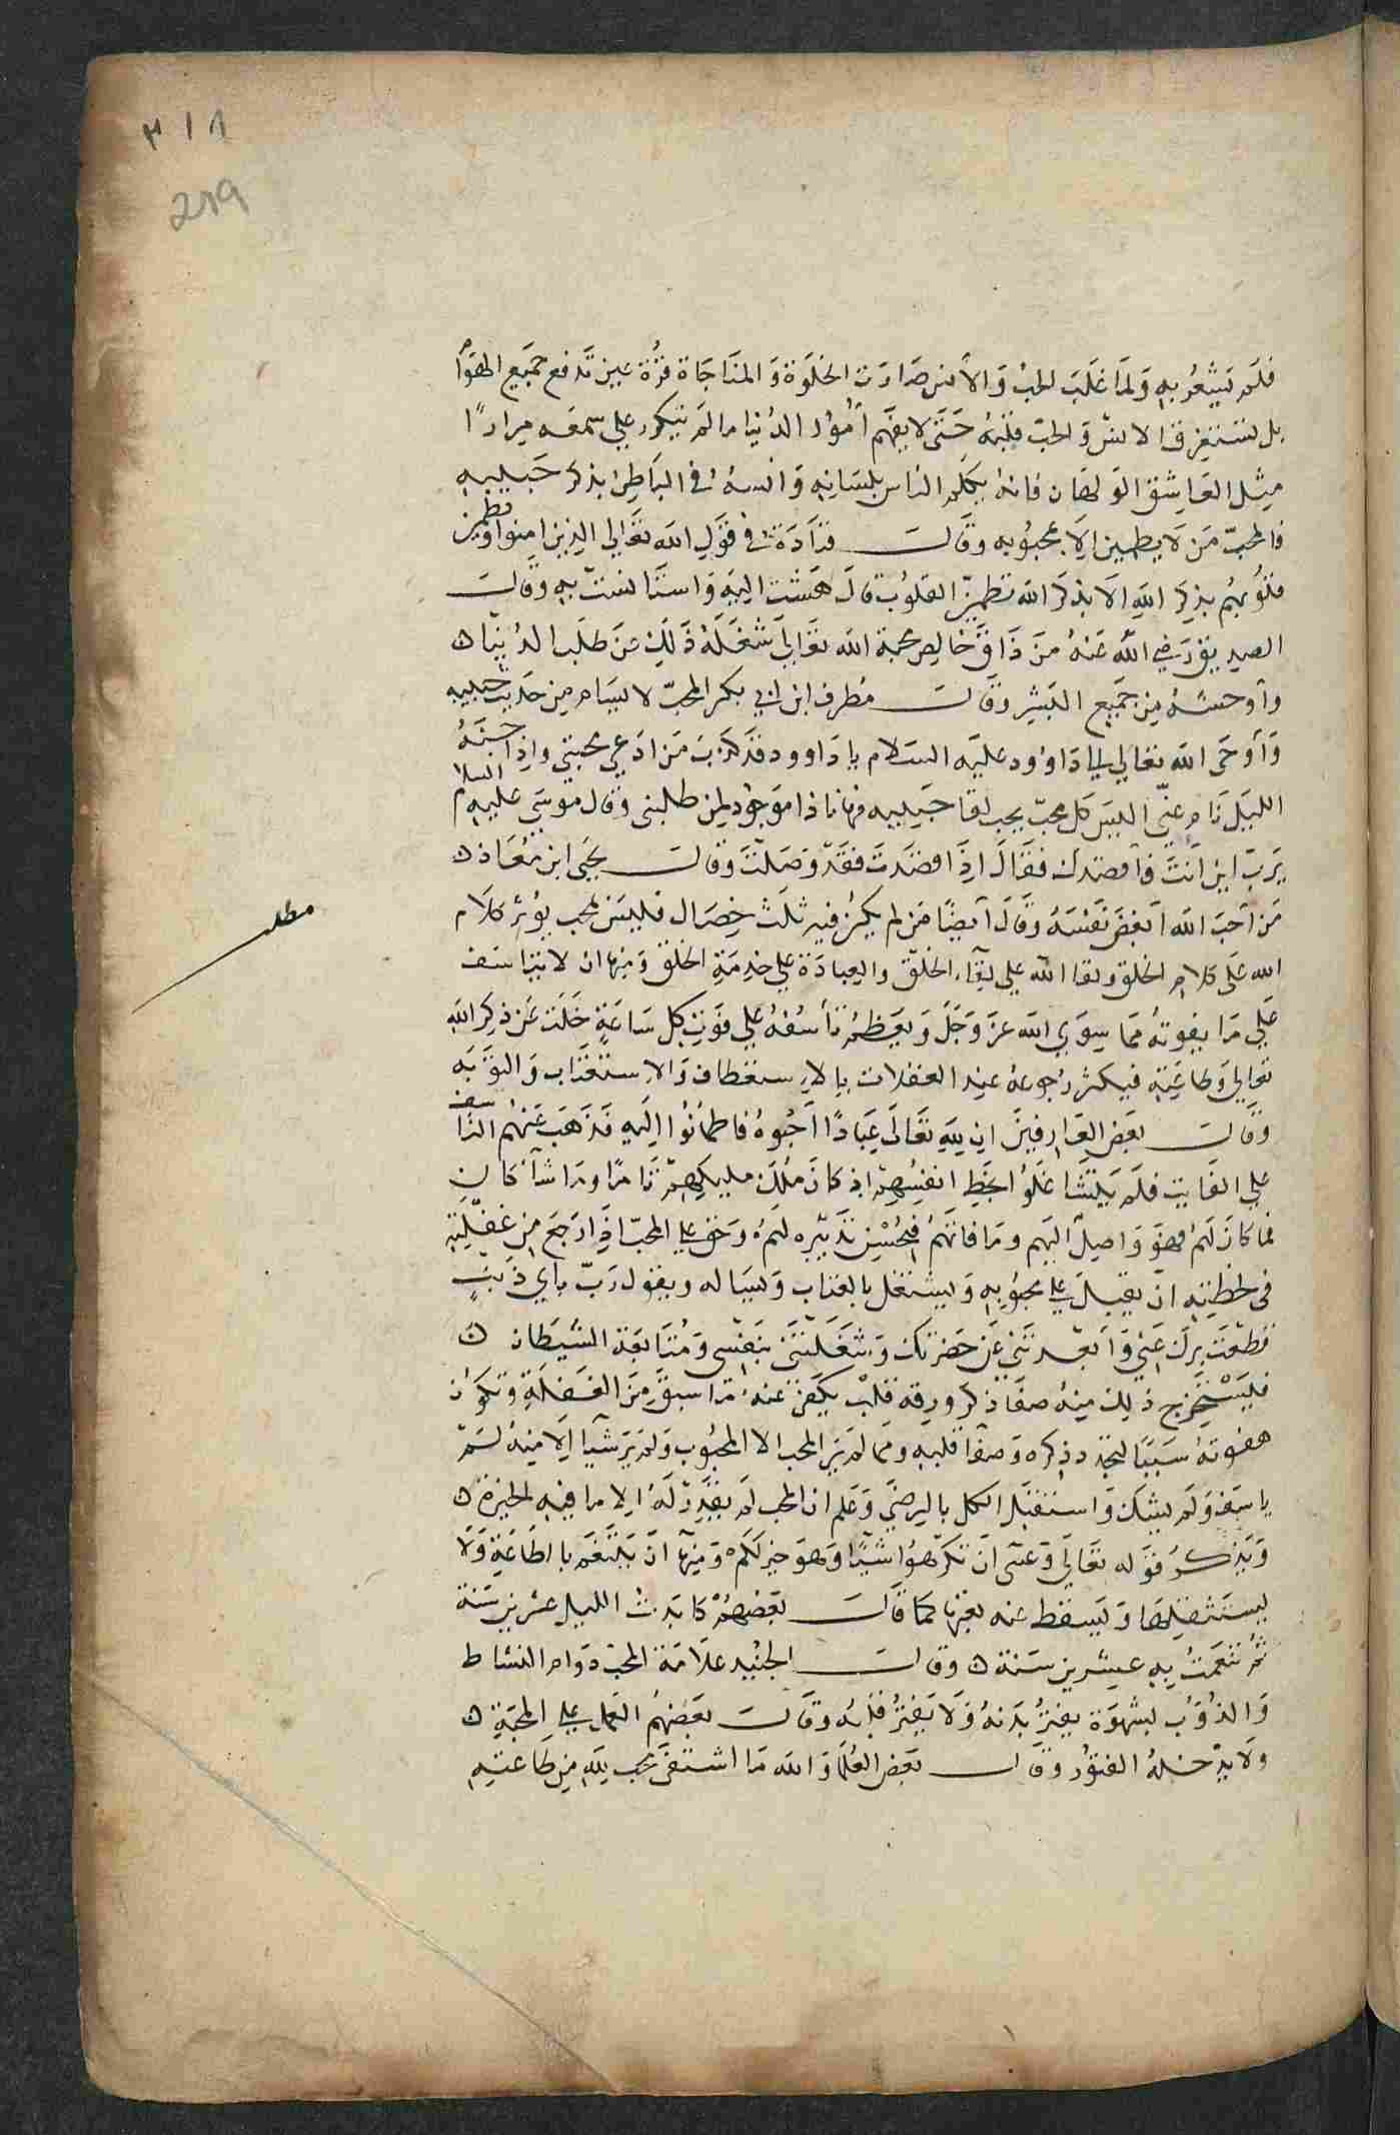 ٣١٨
219
فلم يشعر به ولما غلب الحب والأنس صارت الخلوة والمناجاة قرة عين تدفع جميع الهوا
بل يستغرق الانس والحب قلبه حتى لا يفهم أمور الدنيا ما لم يتكرر علي سمعه مرارًا
مثل العاشق الولهان فانه يكلم الناس بلسانه وانسه في الباطن بذكر حبيبه
فالمحب من لا يطمين إلا بمحبوبه وقال قتادة في قول الله تعالي الذين امنوا وتطمين
قلوبهم بذكر الله الا بذكر الله تطمين القلوب قال هشت اليه واستانست به وقال
الصديق رضي الله عنه من ذاق خالص محبة الله تعالي شغله ذلك عن طلب الدنيا ه
وأوحشه من جميع البشر وقال مطرف ابن ابي بكر المحب لا يسام من حديث حبيبه
وأوحى الله تعالي الي داوود عليه السلام يا داوود قد كذب من ادعي محبتي واذا جنه
الليل نام عني اليس كل محب يحب لقا حبيبه فها نا ذا موجود لمن طلبني وقال موسي عليه السلام
يرب اين أنت فأقصدك فقال اذا قصدت فقد وصلت وقال يحيى ابن معاذ ه
من أحب الله أبغض نفسه وقال أيضًا من لم يكن فيه ثلث خصال فليس بمحب يوثر كلام
مطلب
الله على كلام الخلق ولقا الله علي لقاء الخلق والعبادة علي خدمة الخلق ومنها ان لا يتاسف
علي ما يفوته مما سوي الله عز وجل ويعظم تأسفه علي فوت كل ساعة خلت عن ذكر الله
تعالي وطاعته فيكثر رجوعه عند الغفلات بالاستعطاف والاستعتاب والتوبه
وقال بعض العارفين ان لله تعالى عبادًا أحبوه فاطمأنوا اليه فذهب عنهم التأسف
علي الفايت فلم يتشاغلوا بحظ انفسهم اذ كان ملك مليكهم تامًا وما شآ كان
فما كان لهم فهو واصل اليهم وما فاتهم فبحسن تدبيره لهم وحق علي المحب اذا رجع من غفلته
في لحظته ان يقبل علي محبوبه ويشتغل بالعتاب ويساله ويقول رب باي ذنب
قطعت برك عني وأبعدتني عن حضرتك وشغلتني بنفسي ومتابعة الشيطان ه
فيستخرج ذلك منه صفا ذكر ورقة قلب يكفر عنه ما سبق من الغفلة وتكون
هفوته سببًا لتجدد ذكره وصفا قلبه ومما لم ير المحب الا المحبوب ولم ير شيآ الا منه لم
ياسف ولم يشك واستقبل الكل بالرضي وعلم ان المحب لم يقدر له الا ما فيه الخيرة ه
ويذكر قوله تعالي وعسى ان تكرهوا شيًا وهو خير لكم ومنها ان يتنعم بالطاعة ولا
يستثقلها ويسقط عنه تعبها كما قال بعضهم كابدت الليل عشرين سنة
ثم تنعمت به عشرين سنة ه وقال الجنيد علامة المحب دوام النشاط
والدؤب بشهوة يفتر بدنه ولا يفتر قلبه وقال بعضهم العمل علي المحبة ه
ولا يدخله الفتور وقال بعض العلما والله ما اشتفي محب لله من طاعته